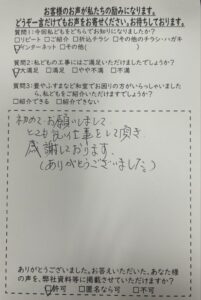 お客様のお声が私たちの励みになります。
どうぞ一言だけでもお声をお寄せください。お待ちしております。
質問1：今回私どもをどちらでお知りになりましたか？
□リピート □ご紹介 □折込チラシ □その他のチラシ・ハガキ
☑インターネット □その他（　　　）
質問2：私どもの工事にはご満足いただけましたでしょうか？
☑大満足 □満足 □やや不満 □不満
質問3：畳やふすまなど和室でお困りの方がいらっしゃいまし
たら、私どもをご紹介いただけますでしょうか？
□紹介できる □紹介できない
初めてお願いしまして
とても良い仕事をして頂き
感謝しております。
（ありがとうございました。）
ありがとうございました。お答えいただいた、あなた様
の声を、弊社資料等に掲載させていただけますか？
☑許可 □匿名なら可 □不可